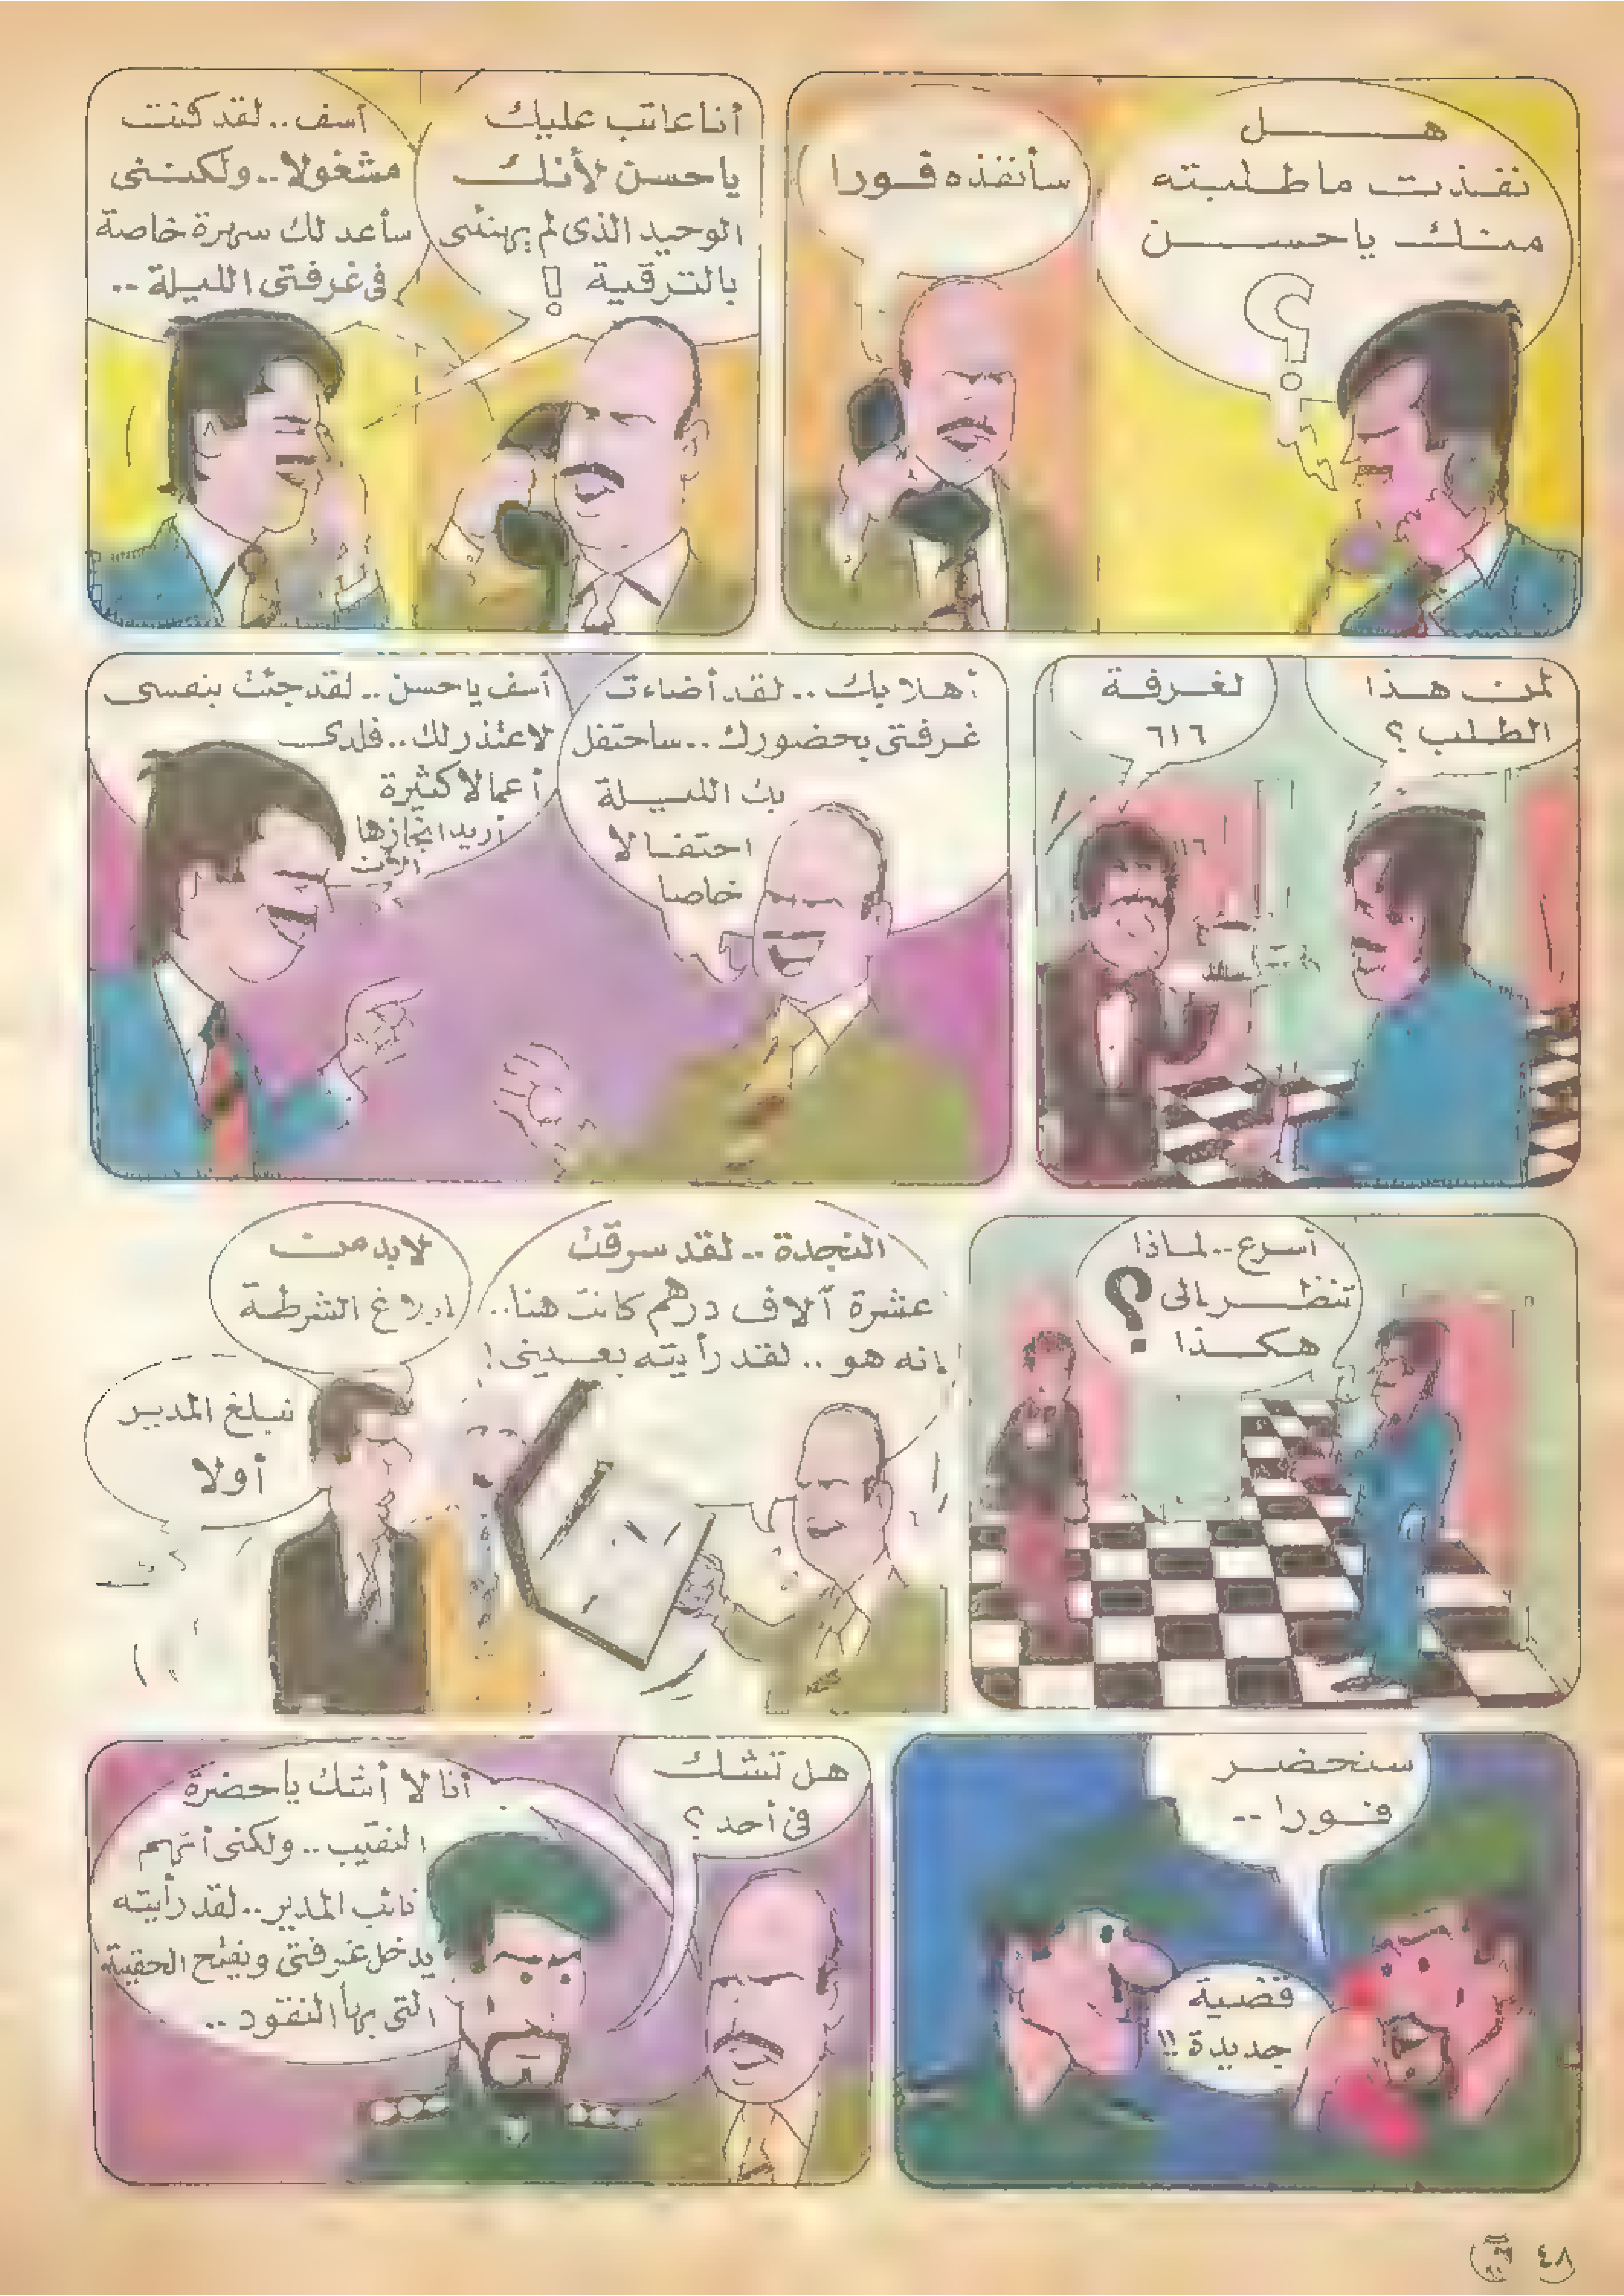 هل
نفذت ما طلبته
منك يا حسن
؟
سأنفذه فورا
أنا عاتب عليك
يا حسن لأنك
الوحيد الذى لم يهنئنى
بالترقية !
آسف .. لقد كنت
مشغولا .. ولكننى
سأعد لك سهرة خاصة
فى غرفتى الليلة ..
لمن هذا
الطلب ؟
لغرفة
٦١٦
أهلا بك .. لقد أضاءت
غرفتى بحضورك .. ساحتفل
بك الليلة
احتفالا
خاصا
آسف يا حسن .. لقد جئت بنفسى
لاعتذر لك .. فلدى
أعمالا كثيرة
أريد انجازها
الآن
أسرع .. لماذا
تنظر إلى
هكذا ؟
النجدة .. لقد سرقت
عشرة آلاف درهم كانت هنا ..
إنه هو .. لقد رأيته بعينى !
لابد من
إبلاغ الشرطة
نبلغ المدير
أولا
سنحضر
فورا ..
قضية
جديدة !!
هل تشك
فى أحد ؟
أنا لا أشك يا حضرة
النقيب .. ولكنى أتهم
نائب المدير .. لقد رأيته
يدخل غرفتى ويفتح الحقيبة
التى بها النقود ..
٤٨